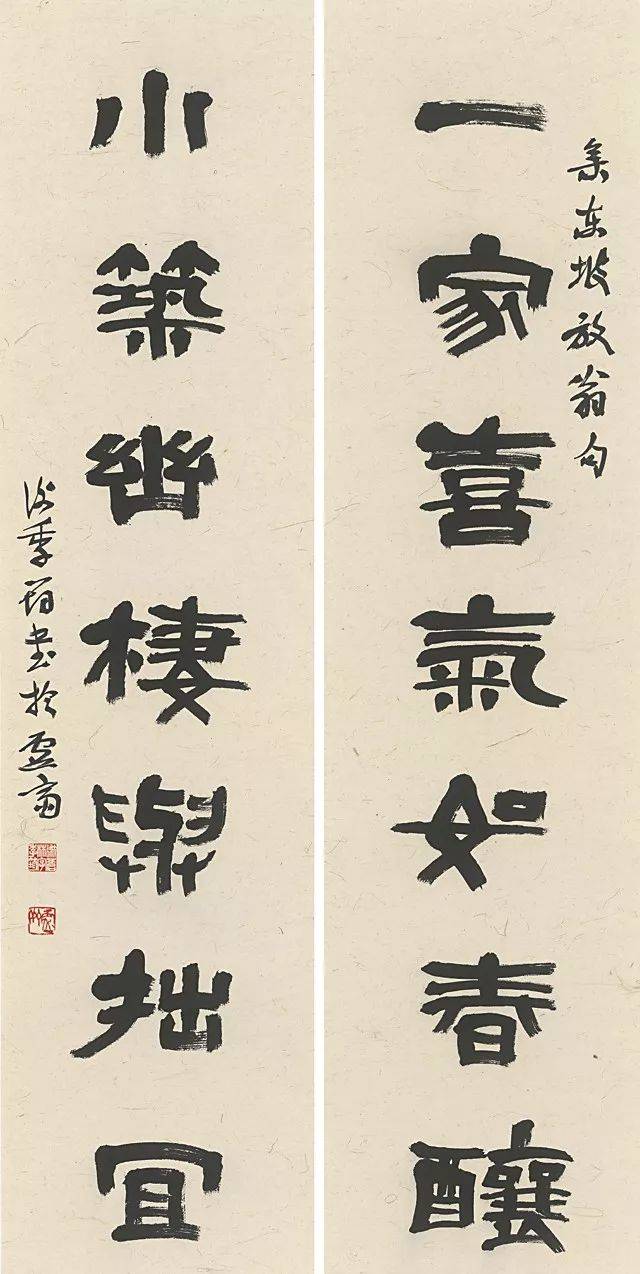 集东坡放翁句
一家喜氣如春釀
小築幽棲與拙宜
季 书於 斋